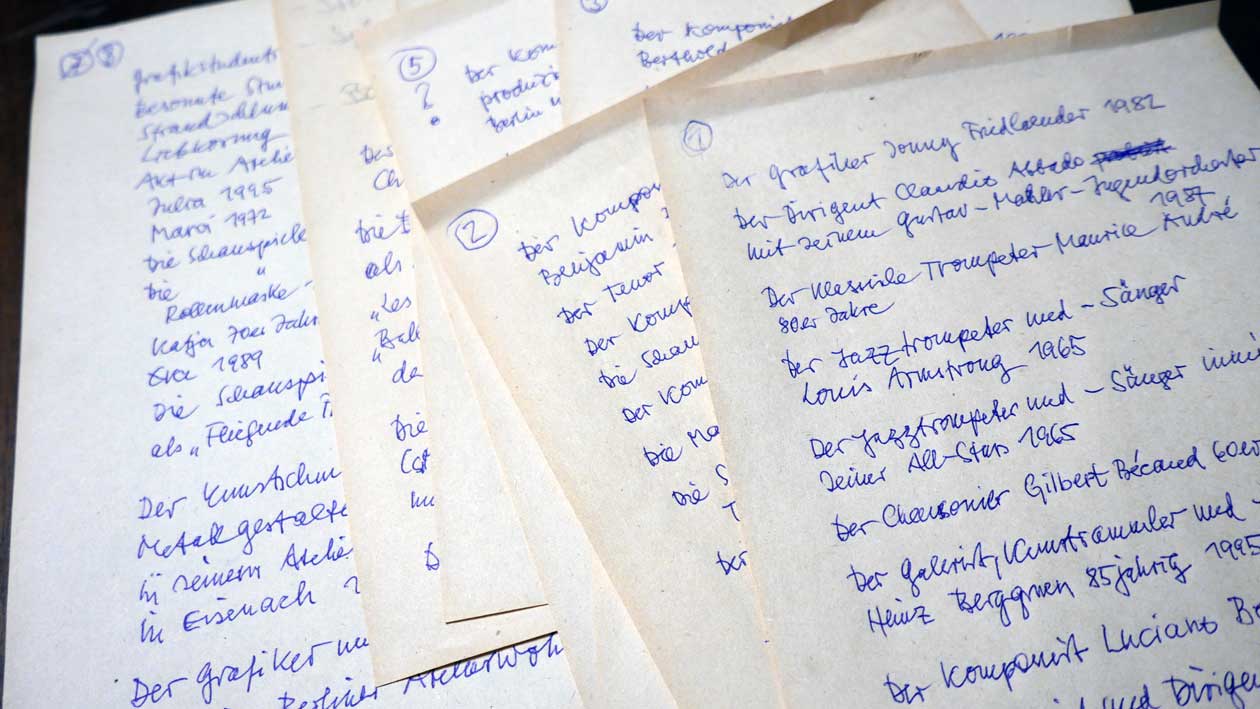 1
Der Grafiker Jonny Friedlaender 1982
Der Dirigent Claudio Abbado
mit seinem Gustav-Mahler-Jugendorchester
1987
Der klassische Trompeter Maurice André
80er Jahre
Der Jazztrompeter und – Sänger
Louis Armstrong 1965
Der Jazztrompeter und – Sänger
seiner All-Stars 1965
Der Chansonier Gilbert Bécaud 60er
Der Galerist, Kunstsammler und –
Heinz Berggruen 85jährig 1995
Der Komponist Luciano
und Dirigen
2
Der Kompon
Benjamin
Der Tenor
Der Komp
Die Schau
Der Kom
Die Ma
Die S
T
Der
3
Der Komponi
Berthold
5
?
Der Kom
produzi
Berlin
Der
Ch
Die
als
"Les
"Ball
de
Die
Im
D
3
Grafikstudent
Besonnte
Strand
Liebkosung
Akt im Atelie
Julia 1995
Maró 1972
Die Schauspiele
"
Die
Rollenmaske
Katja 70er Jahr
Eva 1989
Die Schauspi
als "Fliegende
Der Kunstschm
Metallgestalte
in seinem Atelie
in Eisenach
Der Grafiker
Berliner Atelierwoh